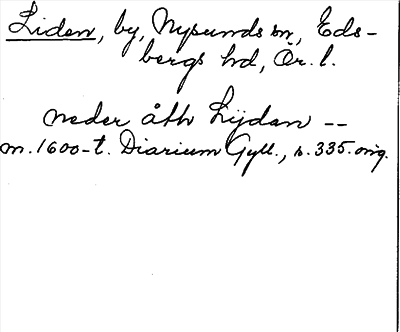 Liden, by, Nysunds sn, Eds-
bergs hd, Ör. l.
neder åth Lijdan --
m. 1600-t. Diarium Gyll., s. 335. orig.